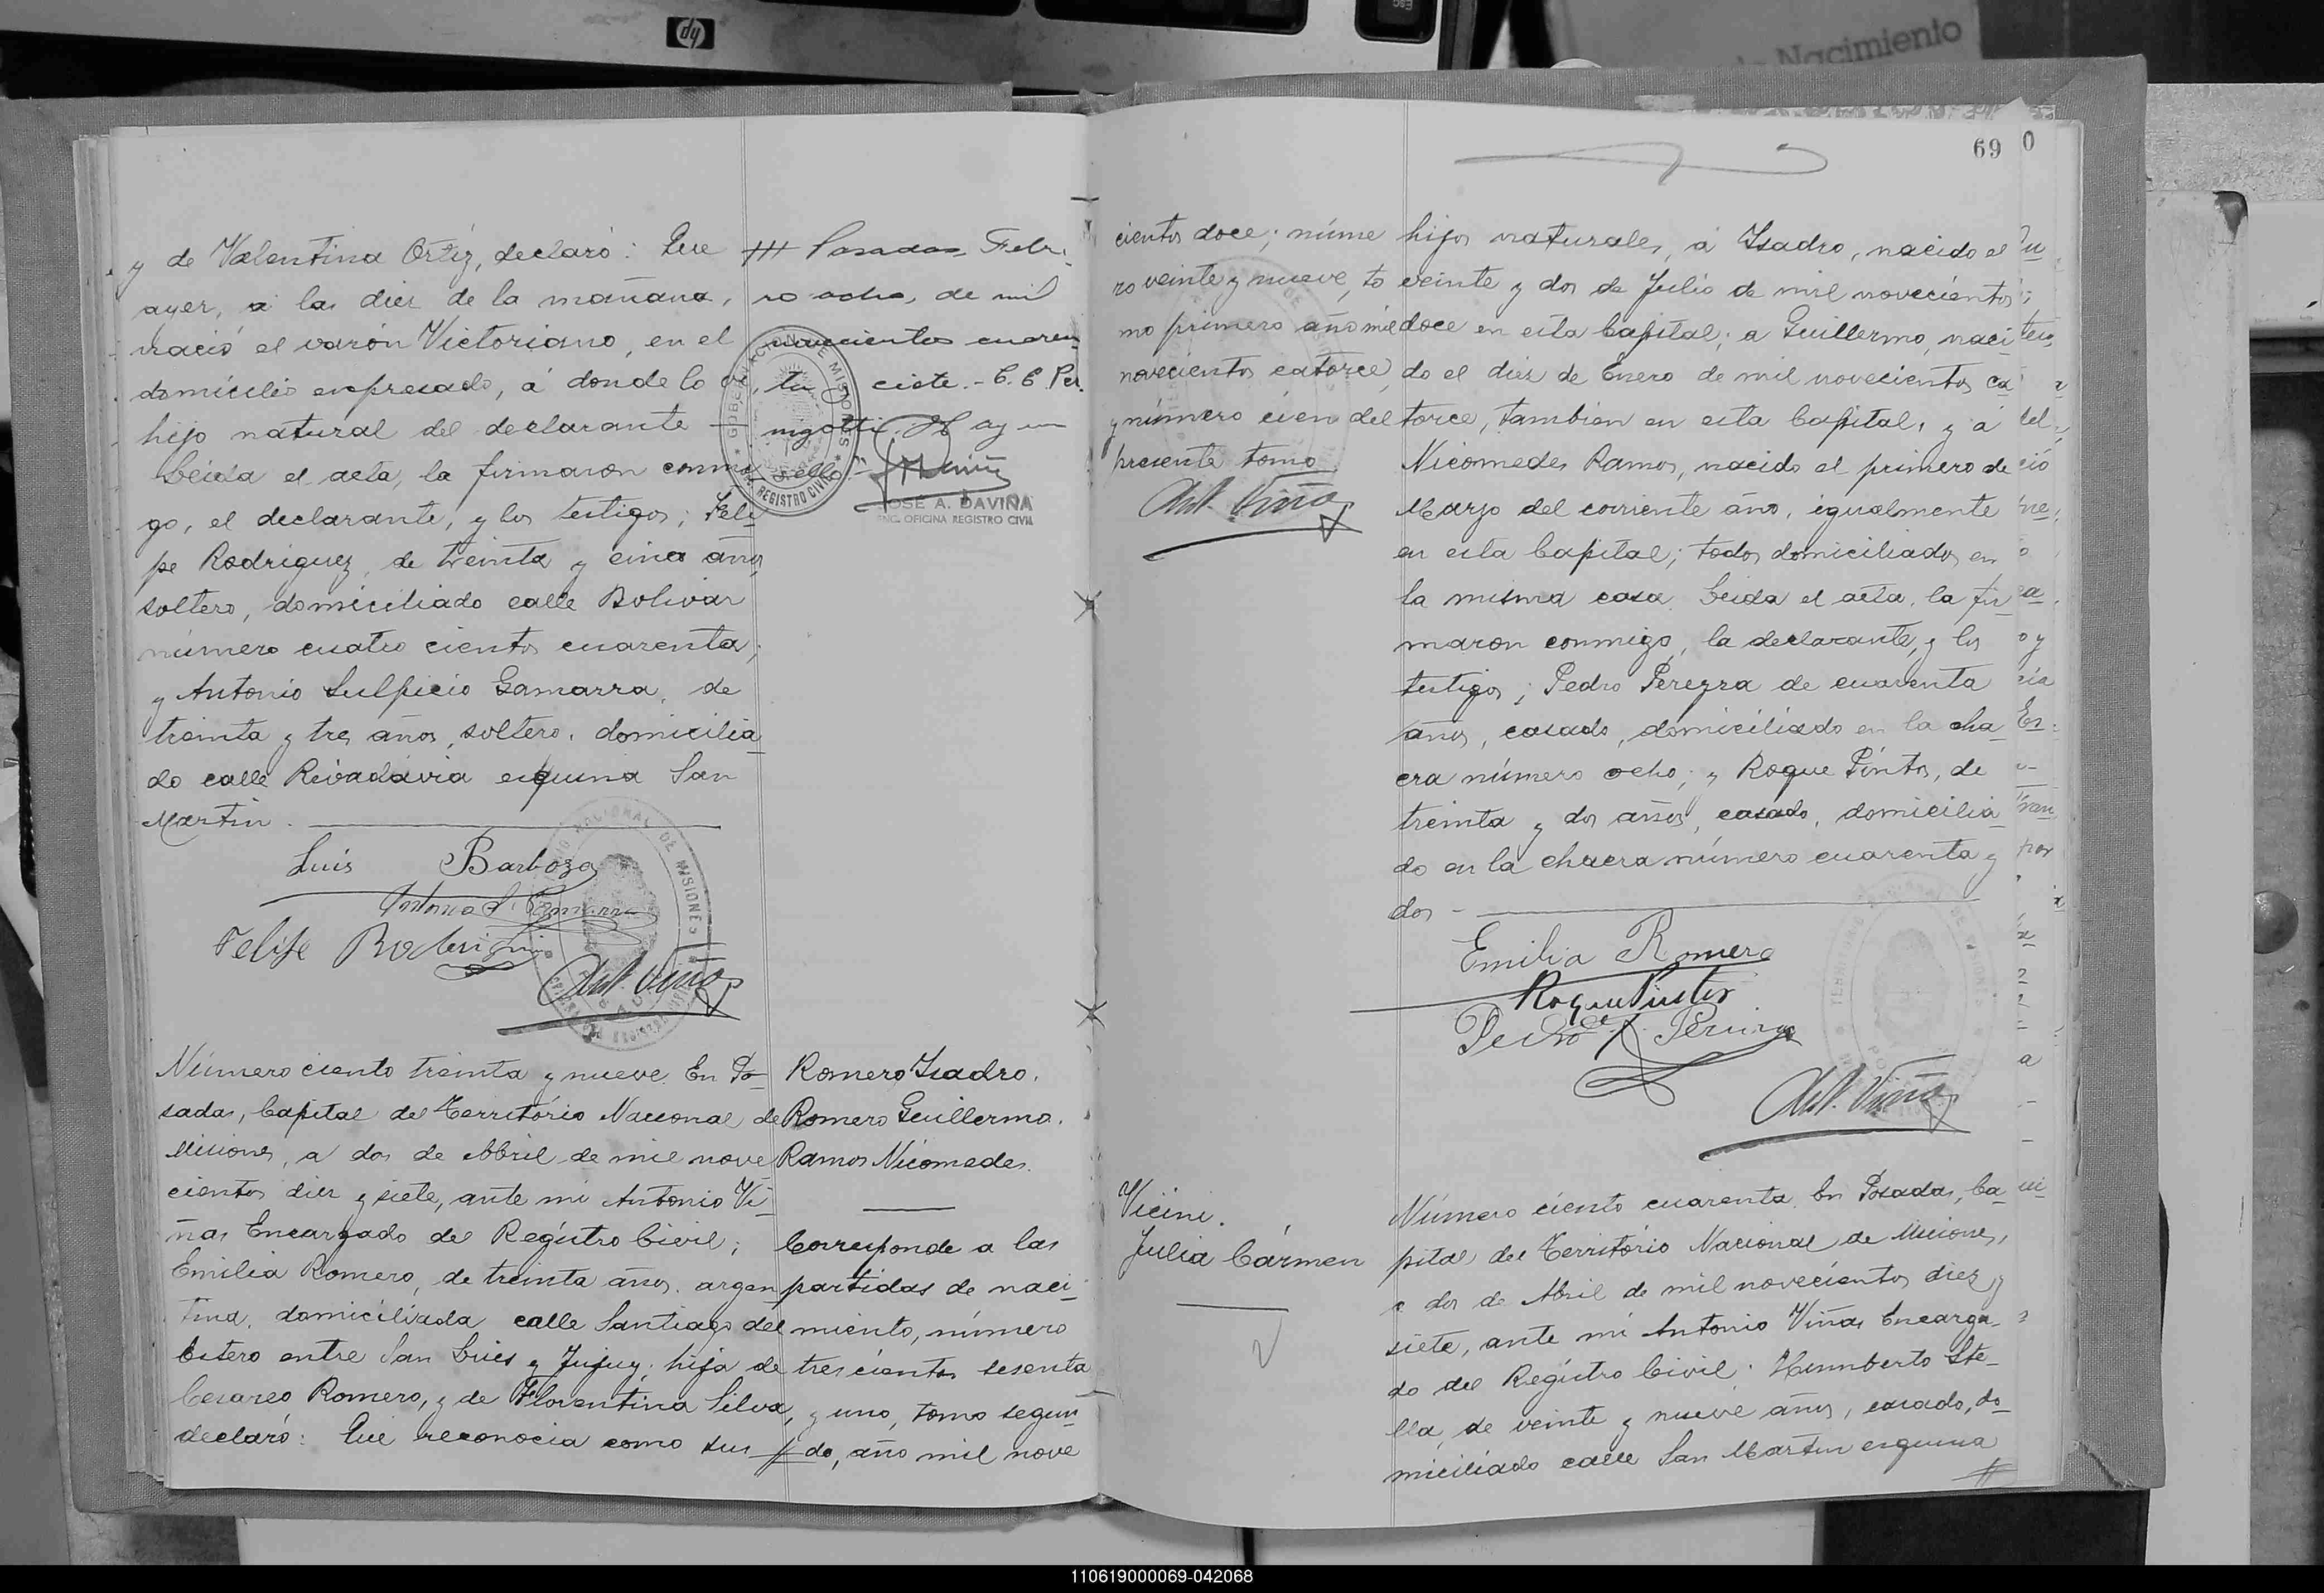 Nacimiento
hp
ESC
y de Valentina Ortiz, declaró: Que
ayer, a las diez de la mañana,
nació el varón Victoriano, en el
domicilio expresado, á donde lo vi,
hijo natural del declarante —
Leida el acta, la firmaron conmi
go, el declarante, y los testigos; Feli
pe Rodriguez, de treinta y cinco años
soltero, domiciliado calle Bolivar
número cuatro cientos cuarenta;
y Antonio Sulpicio Gamarra, de
treinta y tres años, soltero, domicilia
do calle Rivadavia esquina San
Martin.
Luis Barboza
Antonio S. Gamarra
Felipe Rodrigu
Ant. Viñas
Posadas, Febre
ro ocho, de mil
novecientos cuaren
ta y siete. - C. E. Per
ugotti. Hay un
sello
GOBERNACION DE MISIONES
REGISTRO CIVIL
JOSÉ A. DAVIÑA
ENC. OFICINA REGISTRO CIVIL
Número ciento treinta y nueve. En Po
sadas, Capital del Territorio Nacional de
Misiones, a dos de Abril de mil nove
cientos diez y siete, ante mi Antonio Vi
ñas Encargado del Registro Civil;
Emilia Romero, de treinta años, argen
tina, domiciliada calle Santiago del
Estero entre San Luis y Jujuy; hija de
Cesareo Romero, y de Florentina Silva,
declaró: Que reconocia como sus
Romero Isadro.
Romero Guillermo.
Ramos Nicomedes.
Corresponde a las
partidas de naci
miento, número
trescientos sesenta
y uno, tomo segun
do, año mil nove
69
0
cientos doce; núme
ro veinte y nueve, to
mo primero año mil
novecientos catorce,
y número cien del
presente tomo
Ant. Viñas
hijos naturales, á Isadro, nacido el
veinte y dos de Julio de mil novecientos
doce en esta Capital; a Guillermo, naci
do el diez de Enero de mil novecientos ca
torce, tambien en esta Capital, y á
Nicomedes Ramos, nacido el primero de
Marzo del corriente año, igualmente
en esta Capital; todos domiciliados en
la misma casa. Leida el acta, la fir
maron conmigo, la declarante, y los
testigos; Pedro Pereyra de cuarenta
años, casado, domiciliado en la cha
cra número ocho; y Roque Pintos, de
treinta y dos años, casado, domicilia
do en la chacra número cuarenta y
dos -
Emilia Romero
Roque Pintos
Pedro Pereira
Ant. Viñas
Vicini.
Julia Cármen
Número ciento cuarenta. En Posadas, Ca
pital del Territorio Nacional de Misiones,
a dos de Abril de mil novecientos diez y
siete, ante mi Antonio Viñas Encarga
do del Registro Civil: Humberto Ste
lla, de veinte y nueve años, casado, do
miciliado calle San Martin esquina
110619000069-042068